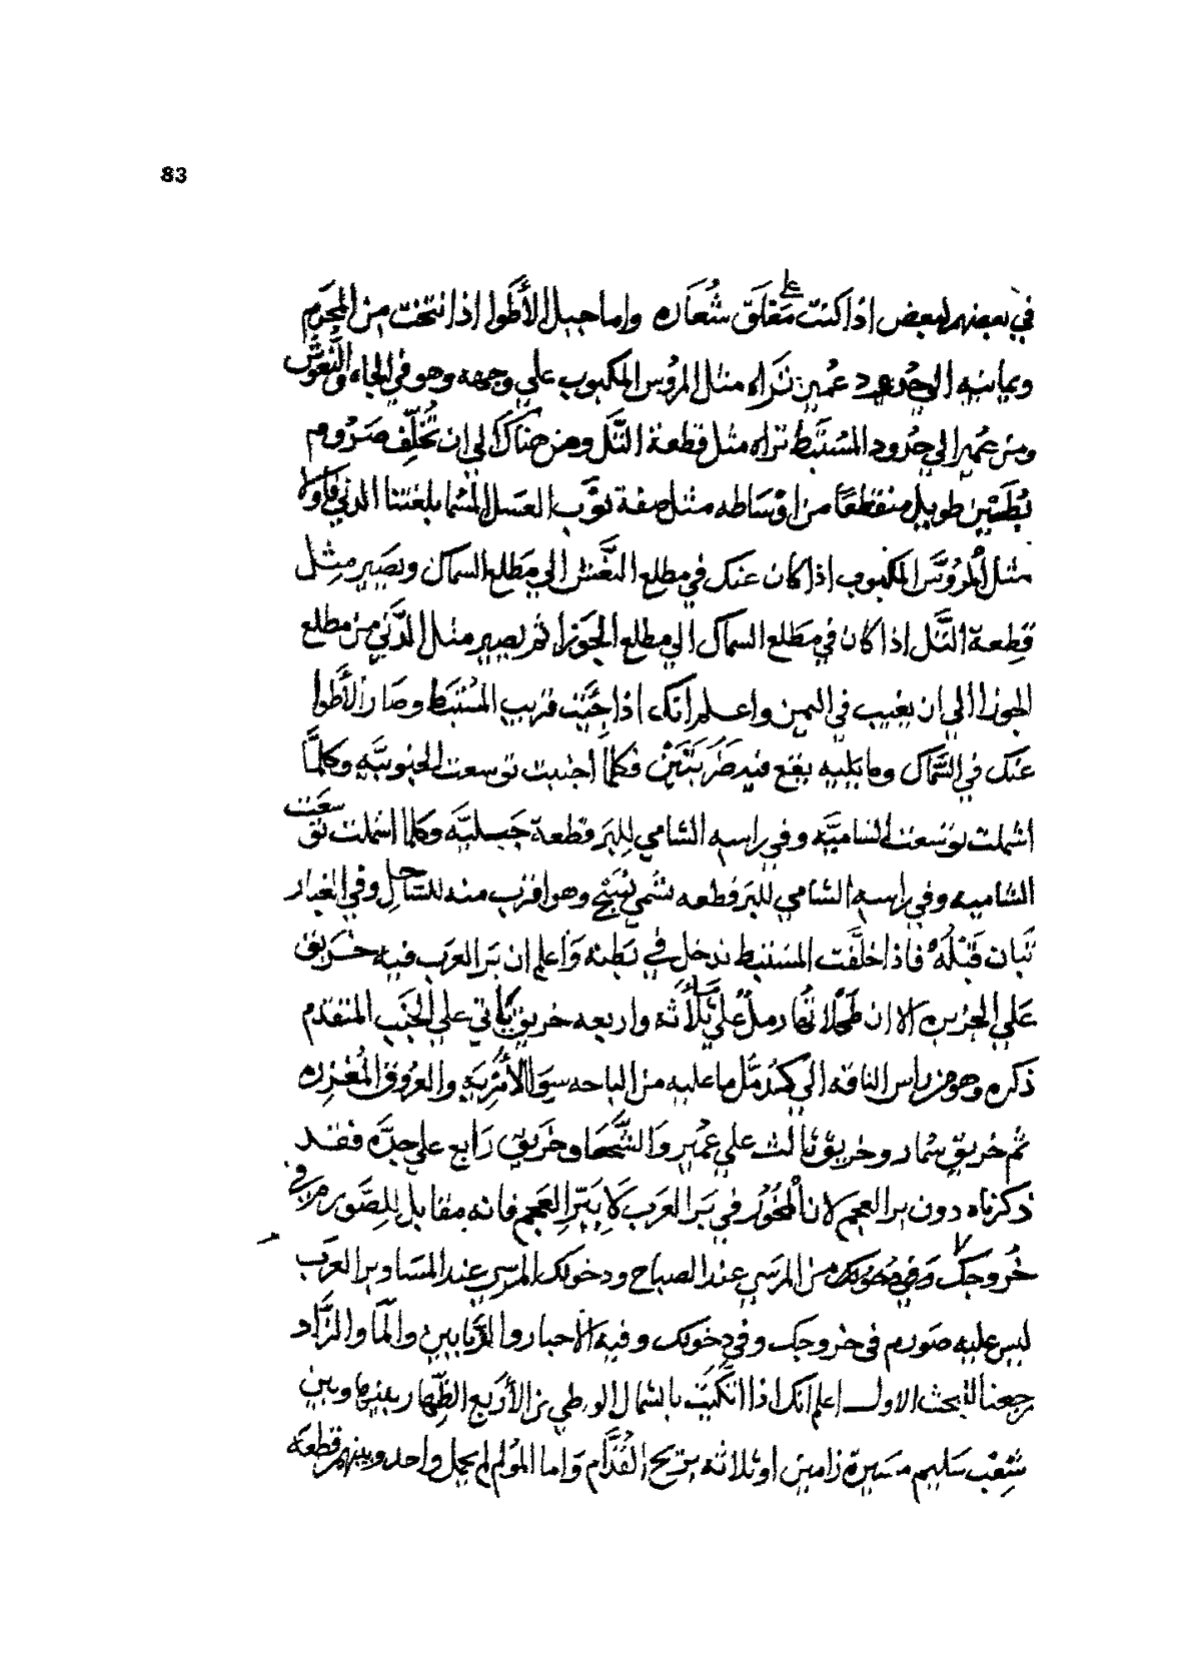 83
في بعضهم لبعض اذا كنت على مَغلَق شُعَاره واما جبل الأَطْوا اذا نتخت من المجرم
ويمانيه الي حدود عُمِير تَراه مثال المرُوس المكبوب علي وجهه وهو في الجاه والنَّعوش
ومن عُمير الي حُدود المسُتَنبَط تراه مثل قطعة التَّل ومن هناك الي ان تُخَلِّف صَرُوم
بُطَيْن طويل منقطعًا من اوْسَاطه مثل صفة ثوب العسل انما بلغتنا الذي قاولا
مثل المُروَّس المكبوب اذا كان عنك في مطلع النَّعش الي مَطلع السماك ويصَير مِثِل
قِطعة التَّل اذا كان في مَطلع السماك الي مطلع الجَوزا ثم يصير مثال الدَّني من مطلع
الجوزا الي ان يغيب في اليمن واعلم انك اذا جِيَت قريب المسُتنبَط وصَار الأَطوا
عنك في السَّماك وما يَليه يقع فيه ضَرْبَتَيْن فكلما اجنبت توسعت الجنوبيَّه وكلمَّا
اشملت توَسَعت الشاميَّه وفي راسه الشامي للِبَر قطعة جَبَليَّه وكلما اشملت توسعَت
الشاميه وفي راسه الشامي للبَر قطعه تسُمي وهو اقرب منه للسَّاحِل وفي الغبار
تَبان قَبْلَهُ فاذا خلَّفت المسَتنبط تدخل في بَطنه وَاعلم ان بَر العرَب فيه خَريق
عَلي الجزيره الا ان رمل علي ثلاثه واربعه خريق يأتي علي الجَنب المتقدم
ذكره وهو من راس الناقه الي كدُمُّل ما عليه من الباحه سِوَا الأَتْرِبَه والعرُوق المُغْزِره
ثُم خُريق سُمار وخريق ثالث علي عُمِير وَالشَّحَا وخَريق رَابع علي جدَّه فقد
ذكرناه دون بر العجم لان الخُوَّر في بَر العَرب لا بَبَّر العَجم فانه مقابل للِصَّور مرة في
خُروجك وفي دخولك من المرَسَي عند الصباح ودخولك المرسي عند المسَا وبر العرَب
ليس عليه صَورم في خروجك وفي دخولك وفيه الاحبار والرَّبابين والمَّا والزَّاد
رجعنا للبَحث الاول اعلم انك اذا اتكَيت بالشمال الوَرطي من الأَرَبع الظِّهار بينها وبين
شِعْب سَليم مسَيرة زامين او ثلاثه بريح القُدَّام وَاما المؤلم لم يجل واحد وبينهم قطعَه